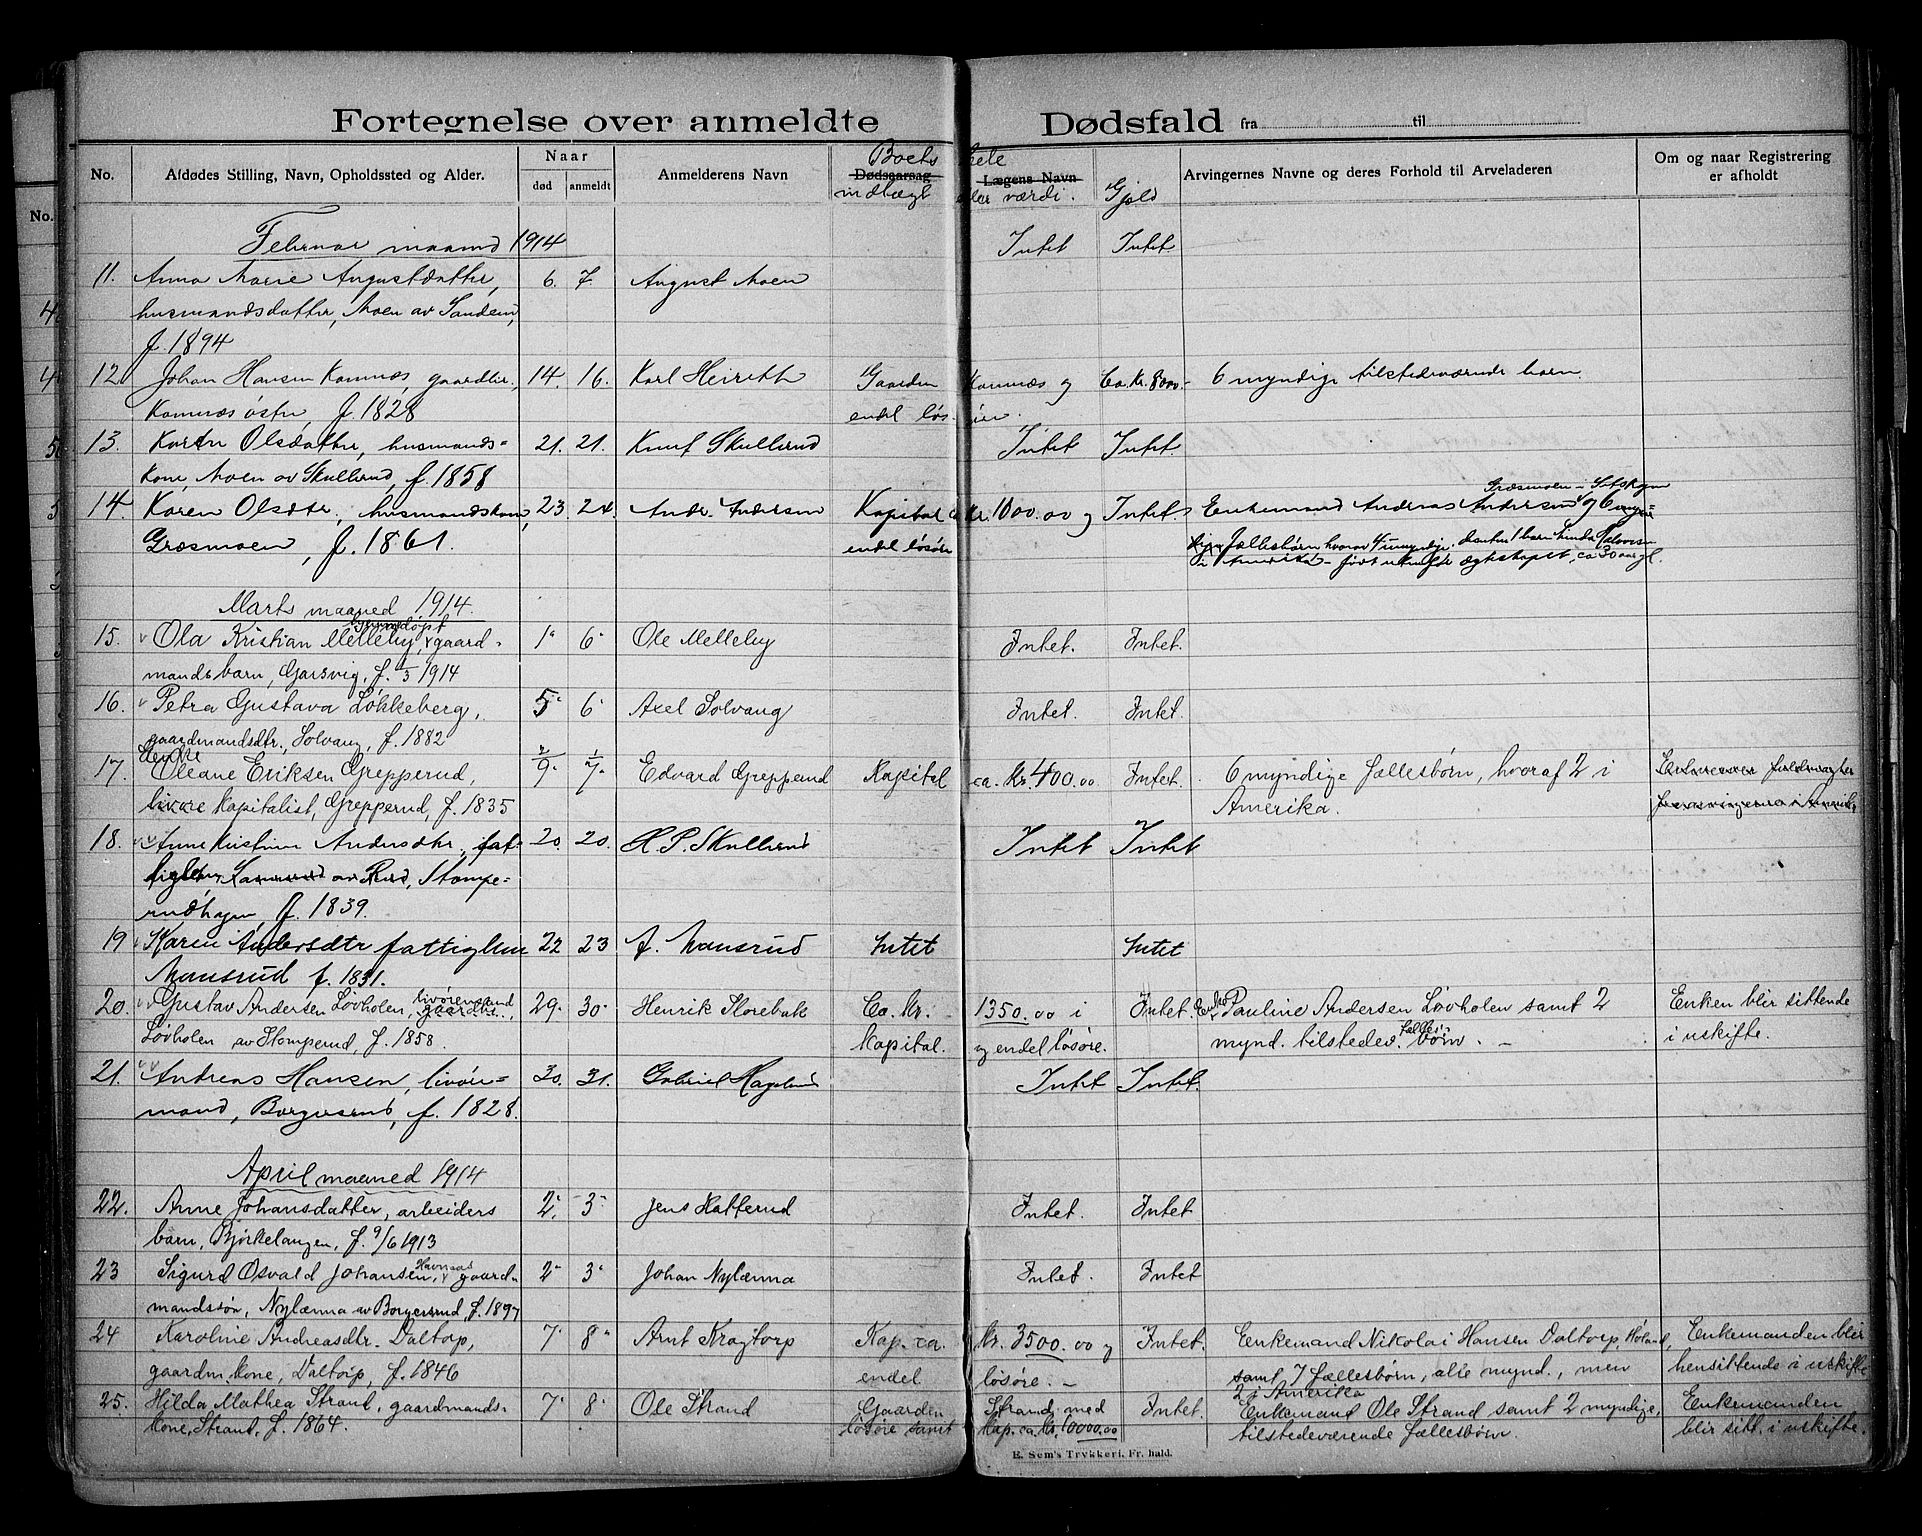 Fortegnelse over anmeldte Dødsfald fra til
No. Afdødes Stilling, Navn, Opholdssted og Alder. Naar død anmeldt Anmelderens Navn Dødsaarsag Lægens Navn Arvingernes Navne og deres Forhold til Arveladeren Om og naar Registrering er afholdt
Boets hele
indtægt eller værdi. Gjæld
No.
Februar maaned 1914 Intet Intet
11. Anna Marie Augustdatter, 6. 7. August Moen
husmandsdatter, Moen av Sandem,
f. 1894
12 Johan Hansen Kamnæs, gaardbr. 14. 16. Karl Heireth Gaarden Kamnæs og Ca. Kr. 8000.- 6 myndige tilstedeværende barn.
Kamnæs østre, f. 1828 endel løsøre.
13. Karen Olsdatter, husmands= 21. 21. Knut Skullerud Intet Intet
kone, Moen av Skullerud, f. 1858
14. Karen Olsdtr., husmandskone, 23. 24. Andr. Andersen Kapital ca Kr. 1000.00 og Intet. Enkemand Andreas Andersen Græsmoen - Setskogen og 6 myn=
Græsmoen, f. 1861. endel løsøre dige fællesbørn hvorav 4 umyndige. desuten 1 barn Linda
i Amerika - født utenfor ægteskapet, ca 30 aar gl.
Mars maaned 1914.
15. Ola Kristian Melleby, hjemmedøpt gaard- 1" 6" Ole Melleby Intet. Intet.
mandsbarn, Gjørsvig, f. 1/3 1914
16. Petra Gustava Løkkeberg, 5" 6" Axel Solvang Intet. Intet.
gaardmandsdtr., Solvang, f. 1882
17. Oleane Eriksen Grepperud, 2/9" 1/7" Edvard Grepperud Kapital ca. Kr. 400.00 Intet. 6 myndige fællesbørn, hvoraf 2 i
Kapitalist, Grepperud, f. 1835 Amerika.
18. Anne Kristine Andersdtr., fat- 20. 20. H. P. Skullerud Intet Intet
tiglem, av Rud, Stompe=
rudhagen, f. 1839.
19 Karen Andersdtr fattiglem 22 23 A. Mansrud Intet Intet
Mansrud f. 1831.
20. Gustav Andersen Løvholen, livøremand gaardbr., 29. 30. Henrik Storebak Ca. Kr. 1350.00 i Intet. Enke Pauline Andersen Løvholen samt 2 Enken blir sittende
Løvholen av Stomperud, f. 1858. Kapital. og endel løsøre. mynd. tilstedev. fælles- børn. - i uskifte.
21. Andreas Hansen, livøre= 30. 31. Gabriel Intet Intet.
mand, Borgersrud, f. 1828.
April maaned 1914
22. Anne Johansdatter, arbeiders 2". 3" Jens Hatterud Intet. Intet
barn, Bjørkelangen, f. 9/6 1913
23 Sigurd Osvald Johansen, Havnaas gaard- 2" 3" Johan Nylænna Intet. Intet
mandssøn, Nylænna av Borgersrud f. 1897
24 Karoline Andreasdtr. Daltorp, 7" 8" Arnt Kragtorp Kap. ca. Kr. 3500.00 og Intet. Enkemand Nikolai Hansen Daltorp, Høland, Enkemanden blir
gaardm. kone, Daltorp, f. 1846 endel løsøre. - samt 7 fællesbørn, alle mynd., men hensittende i uskifte
2 i Amerika
25. Hilda Mathea Strand, gaardmands- 7" 8" Ole Strand Gaarden Strand med Intet. Enkemand Ole Strand samt 2 myndige, Enkemanden
kone, Strand, f. 1864. løsøre samt Kap. ca. Kr. 10000.00 tilstedeværende fællesbørn. blir sitt. i uskifte.
E. Sem's Trykkeri, Fr. hald.